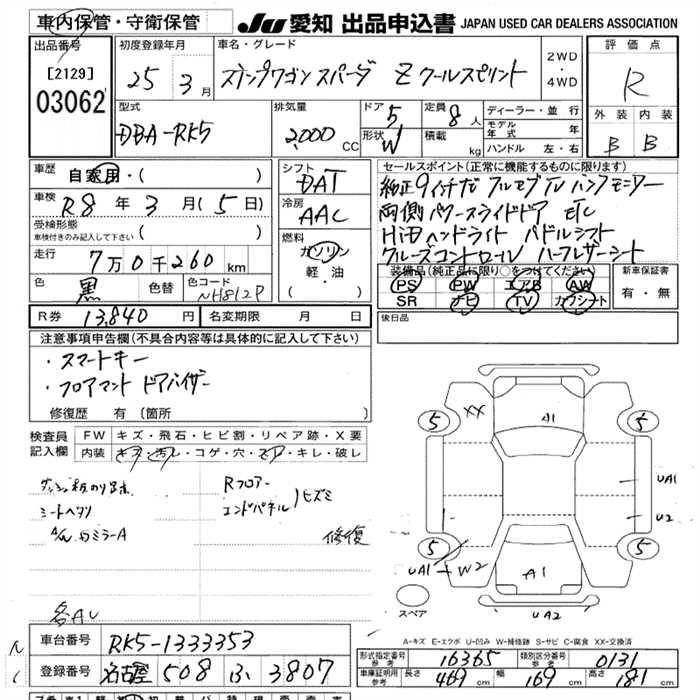 車内保管・守衛保管
JU 愛知 出品申込書 JAPAN USED CAR DEALERS ASSOCIATION
出品番号
[2129]
03062
初度登録年月
25年3月
車名・グレード
ステップワゴン スパーダ Z クールスピリット
2WD・4WD
評価点
R
外装 内装
B B
型式
DBA-RK5
排気量
2,000 CC
ドア 5
形状 W
定員 8人
積載 kg
ディーラー・並行
モデル年式 年
ハンドル 左・右
車歴
自家用・( )
車検
R8年3月(5日)
受検形態
車検付きのみ記入して下さい ( )
走行
7万0千260km
色
黒
色替
色コード
NH812P
シフト
DAT
冷房
AAC
燃料
ガソリン
軽・油
( )
セールスポイント(正常に機能するものに限ります)
純正9インチナビ フルセグTV バックモニター
両側パワースライドドア ETC
HiDヘッドライト パドルシフト
クルーズコントロール ハーフレザーシート
装備品(純正品に限り○をつけてください)
PS PW エアB AW
SR ナビ TV カワシート
新車保証書
有・無
R券 13,840円
名変期限 月 日
後日品
注意事項申告欄(不具合内容等は具体的に記入して下さい)
・スマートキー
・フロアマット ドアバイザー
修復歴 有 〔箇所 〕
検査員記入欄
FW キズ・飛石・ヒビ割・リペア跡・X要
内装 キズ・汚レ・コゲ・穴・スレ・キレ・破レ
シートヘタリ
Rフロアー
エンドパネル ヒズミ
修復
5 XX A1 5
UA1
U2
5 5
UA1 W2
A1
UA2
スペア
A-キズ E-エクボ U-凹み W-補修跡 S-サビ C-腐食 XX-交換済
車台番号 RK5-1333353
登録番号 名古屋 508 ふ 3807
型式指定番号 参考 16365
類別区分番号 参考 0131
車庫証明用 参考 長さ 469cm 幅 169cm 高さ 181cm